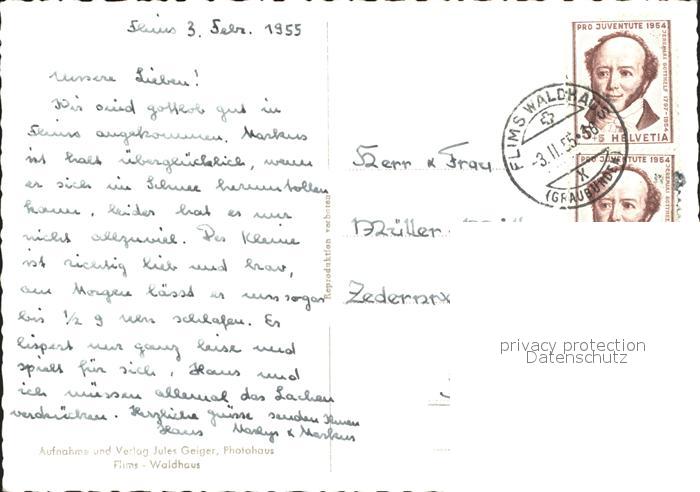 Flims 3. Febr. 1955
unsere Lieben!
Wir sind gottlob gut in
Flims angekommen. Markus
ist halt überglücklich, wenn
er sich im Schnee herumtollen
kann, leider hat es nur
nicht allzuviel. Der Kleine
ist richtig lieb und brav,
am Morgen lässt er uns sogar
bis 1/2 9 Uhr schlafen. Er
lispert nur ganz leise und
spielt für sich, Hans und
ich müssen allemal das Lachen
verdrücken. Herzliche Grüsse senden Ihnen
Hans Marlys & Markus
Aufnahme und Verlag Jules Geiger, Photohaus
Flims - Waldhaus
Reproduktion verboten
Herr & Frau
Müller
Zedern
PRO JUVENTUTE 1954
JEREMIAS GOTTHELF 1797-1854
+5 HELVETIA
FLIMS WALDHAUS
-3.II.55
X
(GRAUBÜNDEN)
PRO JUVENTUTE 1954
JEREMIAS GOTTHELF 1797-1854
privacy protection
Datenschutz